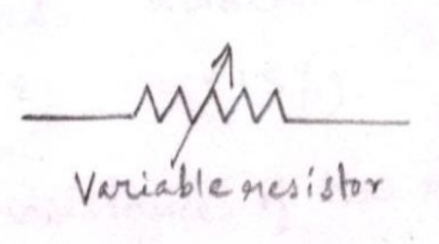 Variable resistor